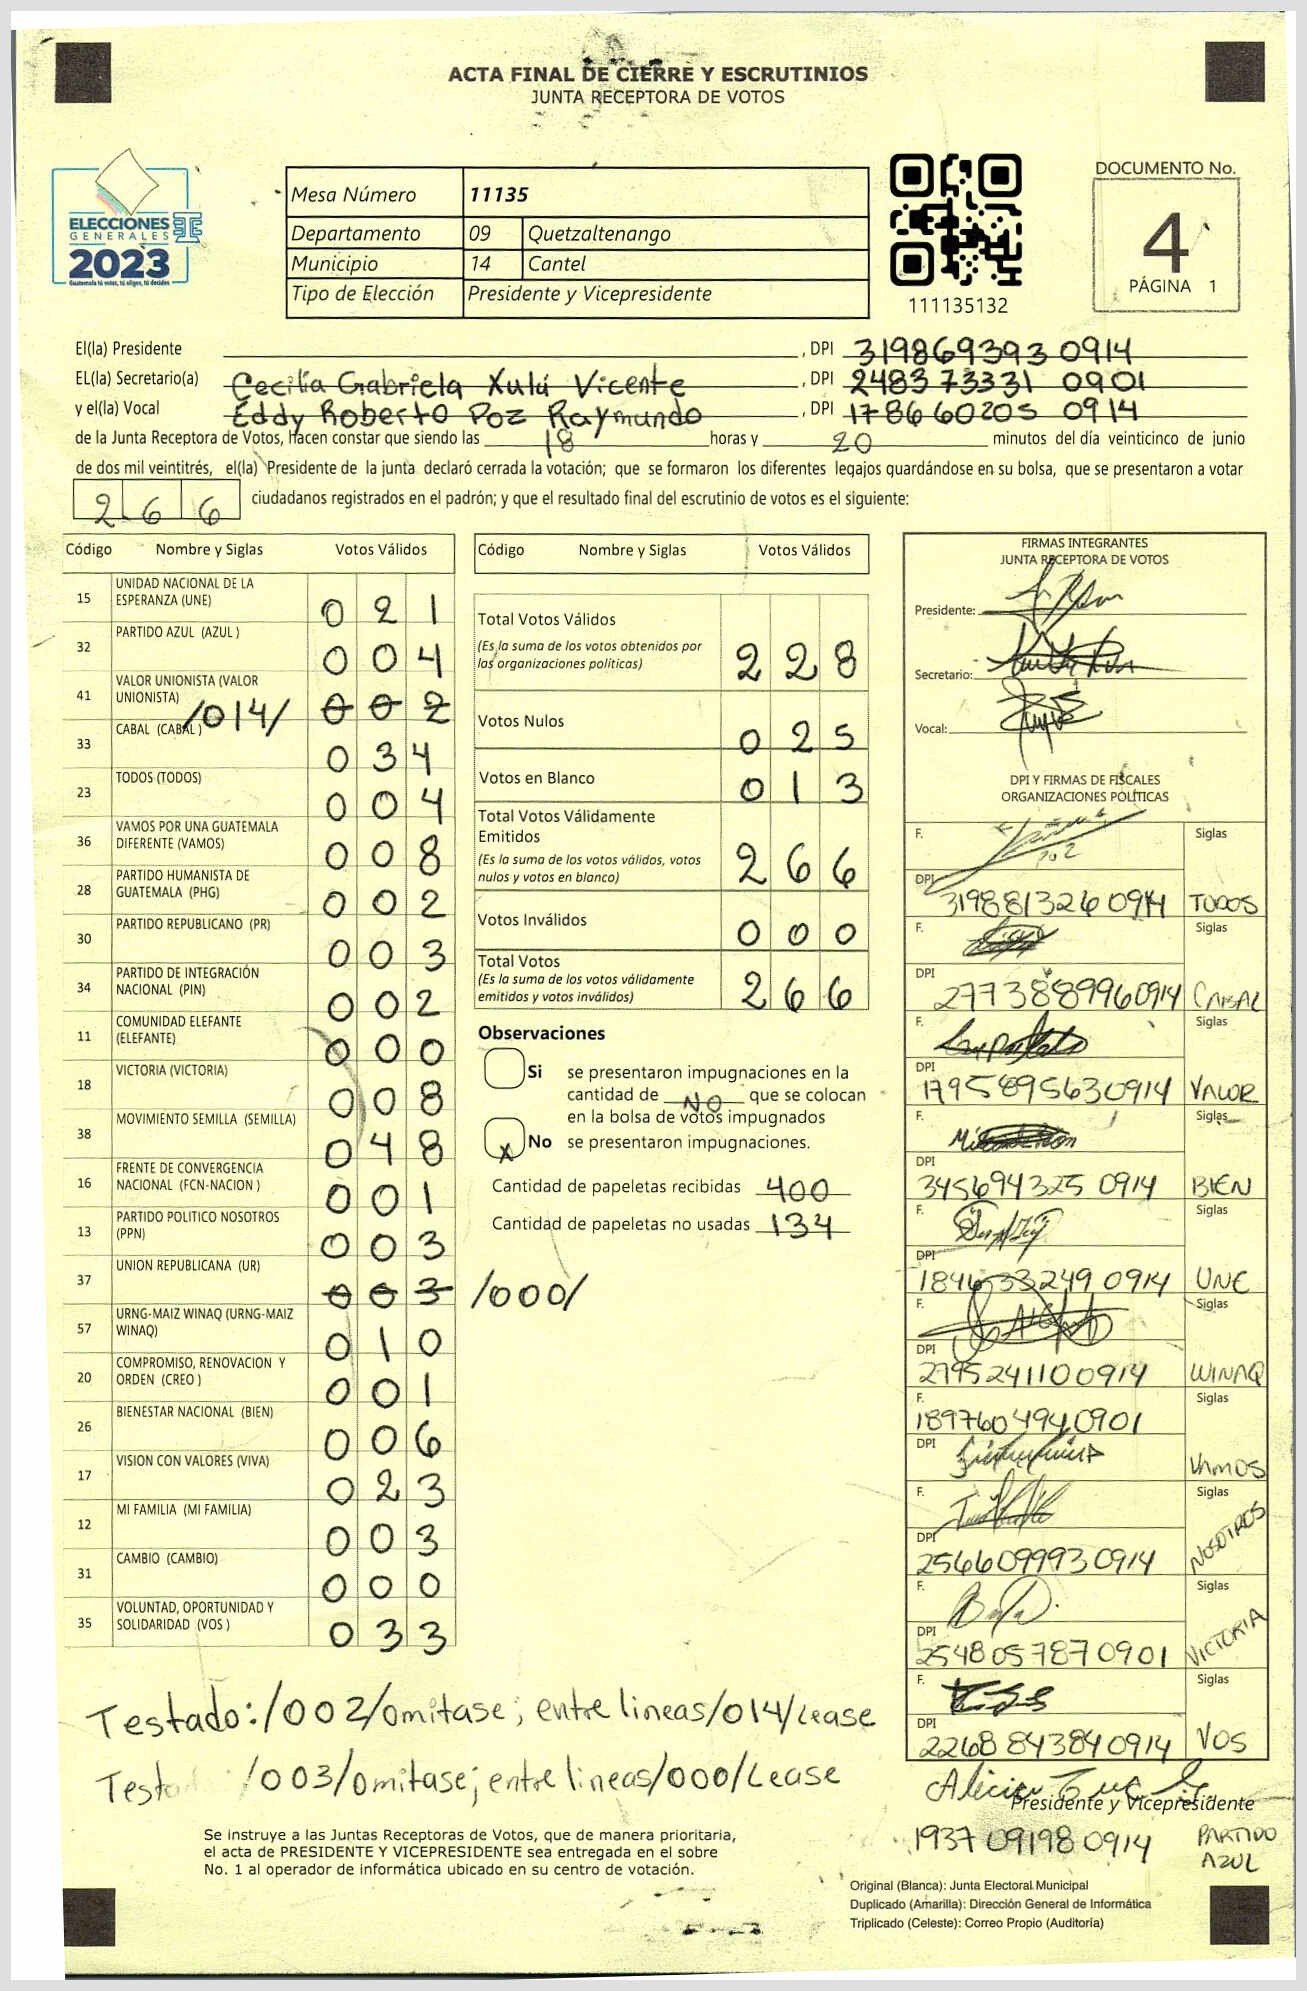 ACTA FINAL DE CIERRE Y ESCRUTINIOS
JUNTA RECEPTORA DE VOTOS
ELECCIONES
GENERALES
2023
Guatemala tú votes, tú eliges, tú decides
Mesa Número 11135
Departamento 09 Quetzaltenango
Municipio 14 Cantel
Tipo de Elección Presidente y Vicepresidente
111135132
DOCUMENTO No.
4
PÁGINA 1
El(la) Presidente , DPI 319869393 0914
EL(la) Secretario(a) Cecilia Gabriela Xulú Vicente , DPI 2483 73331 0901
y el(la) Vocal Eddy Roberto Poz Raymundo , DPI 178660205 0914
de la Junta Receptora de Votos, Hacen constar que siendo las 18 horas y 20 minutos del día veinticinco de junio
de dos mil veintitrés, el(la) Presidente de la junta declaró cerrada la votación; que se formaron los diferentes legajos guardándose en su bolsa, que se presentaron a votar
266 ciudadanos registrados en el padrón; y que el resultado final del escrutinio de votos es el siguiente:
Código Nombre y Siglas Votos Válidos
15 UNIDAD NACIONAL DE LA ESPERANZA (UNE) 021
32 PARTIDO AZUL (AZUL ) 004
41 VALOR UNIONISTA (VALOR UNIONISTA) /014/ 002
33 CABAL (CABAL ) 034
23 TODOS (TODOS) 004
36 VAMOS POR UNA GUATEMALA DIFERENTE (VAMOS) 008
28 PARTIDO HUMANISTA DE GUATEMALA (PHG) 002
30 PARTIDO REPUBLICANO (PR) 003
34 PARTIDO DE INTEGRACIÓN NACIONAL (PIN) 002
11 COMUNIDAD ELEFANTE (ELEFANTE) 000
18 VICTORIA (VICTORIA) 008
38 MOVIMIENTO SEMILLA (SEMILLA) 048
16 FRENTE DE CONVERGENCIA NACIONAL (FCN-NACION ) 001
13 PARTIDO POLITICO NOSOTROS (PPN) 003
37 UNION REPUBLICANA (UR) 003 /000/
57 URNG-MAIZ WINAQ (URNG-MAIZ WINAQ) 010
20 COMPROMISO, RENOVACION Y ORDEN (CREO ) 001
26 BIENESTAR NACIONAL (BIEN) 006
17 VISION CON VALORES (VIVA) 023
12 MI FAMILIA (MI FAMILIA) 003
31 CAMBIO (CAMBIO) 000
35 VOLUNTAD, OPORTUNIDAD Y SOLIDARIDAD (VOS ) 033
Código Nombre y Siglas Votos Válidos
Total Votos Válidos 228
(Es la suma de los votos obtenidos por
las organizaciones políticas)
Votos Nulos 025
Votos en Blanco 013
Total Votos Válidamente
Emitidos 266
(Es la suma de los votos válidos, votos
nulos y votos en blanco)
Votos Inválidos 000
Total Votos 266
(Es la suma de los votos válidamente
emitidos y votos inválidos)
Observaciones
Si se presentaron impugnaciones en la
cantidad de NO que se colocan
en la bolsa de votos impugnados
X No se presentaron impugnaciones.
Cantidad de papeletas recibidas 400
Cantidad de papeletas no usadas 134
FIRMAS INTEGRANTES
JUNTA RECEPTORA DE VOTOS
Presidente:
Secretario:
Vocal:
DPI Y FIRMAS DE FISCALES
ORGANIZACIONES POLÍTICAS
F. Siglas
DPI 319881326 0914 TODOS
F. Siglas
DPI 277388996 0914 CABAL
F. Siglas
DPI 179589563 0914 VALOR
F. Siglas
DPI 345694325 0914 BIEN
F. Siglas
DPI 184633249 0914 UNE
F. Siglas
DPI 279524110 0914 WINAQ
F. Siglas
189760494 0901
DPI VAMOS
F. Siglas
DPI 256609993 0914 NOSOTROS
F. Siglas
DPI 254805787 0901 VICTORIA
F. Siglas
DPI 226884384 0914 VOS
Alicia
Presidente y Vicepresidente
193709198 0914 PARTIDO AZUL
Testado:/002/omitase; entre lineas/014/Lease
/003/omitase; entre lineas/000/Lease
Se instruye a las Juntas Receptoras de Votos, que de manera prioritaria,
el acta de PRESIDENTE Y VICEPRESIDENTE sea entregada en el sobre
No. 1 al operador de informática ubicado en su centro de votación.
Original (Blanca): Junta Electoral Municipal
Duplicado (Amarilla): Dirección General de Informática
Triplicado (Celeste): Correo Propio (Auditoría)